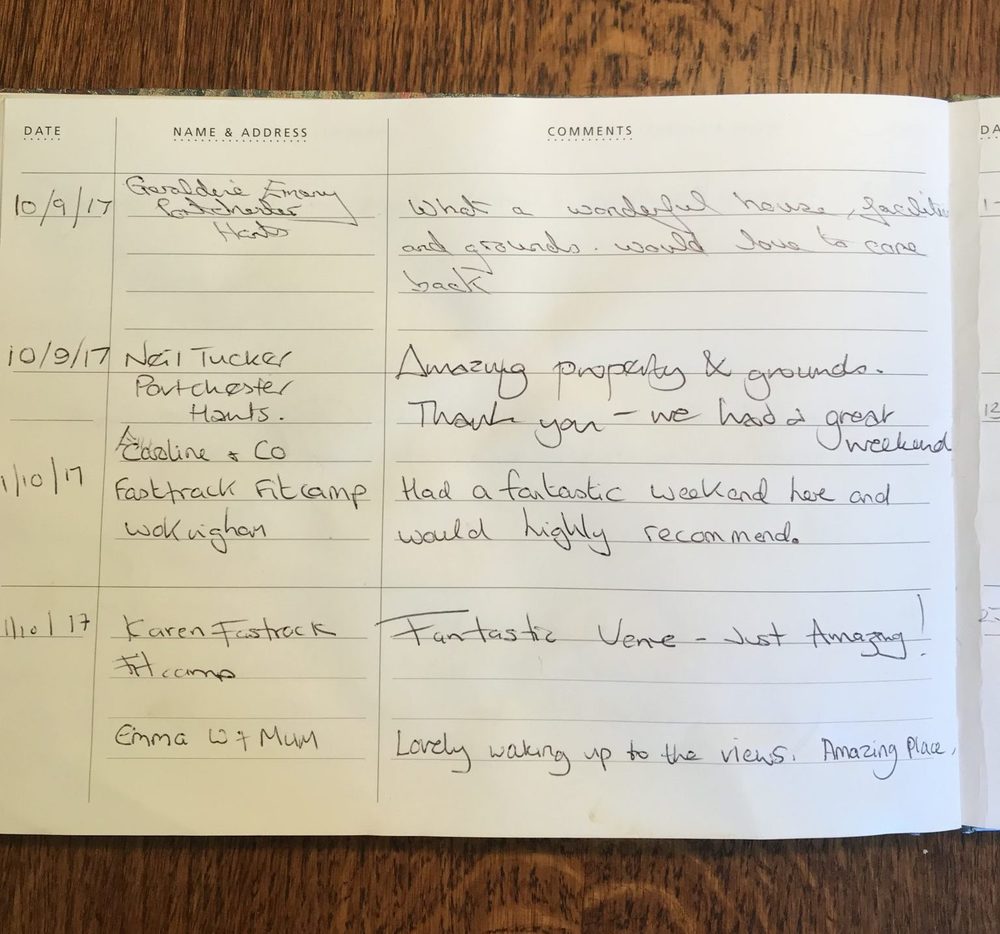 DATE NAME & ADDRESS COMMENTS DA
10/9/17 Geraldene Emery What a wonderful house, facilitie
Portchester and grounds. would love to come
Hants back
10/9/17 Neil Tucker Amazing property & grounds.
Portchester Thank you - we had a great
Hants. weekend
Caroline & Co
1/10/17 Fasttrack Fitcamp Had a fantastic weekend here and
Wokingham would highly recommend.
1/10/17 Karen Fastrack Fantastic Venue - Just Amazing!
Fitcamp
Emma W + Mum Lovely waking up to the views. Amazing Place.